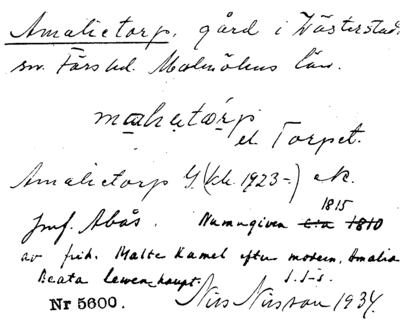 Amalietorp, gård i Västerstad
sn. Färs hd. Malmöhus län.
el. Torpet.
Amalietorp (1923-) ek.
Jmf. Abås. Namngiven c:a 1810 1815
av frih. Malte Ramel efter modern, Amalia
Beata Lewenhaupt.
Nr 5600. Nils Nilsson 1934.